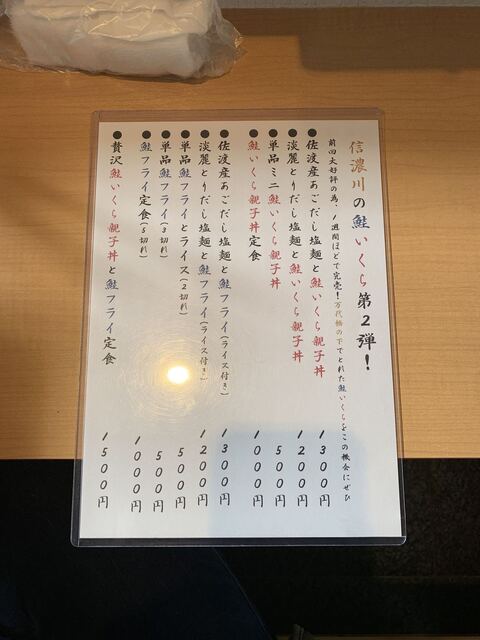 信濃川の鮭いくら第2弾!
前回大好評の為、1週間ほどで完売!万代橋の下でとれた鮭いくらをこの機会にぜひ
●佐渡産あごだし塩麺と鮭いくら親子丼 1300円
●淡麗とりだし塩麺と鮭いくら親子丼 1200円
●単品ミニ鮭いくら親子丼 500円
●鮭いくら親子丼定食 1000円
●佐渡産あごだし塩麺と鮭フライ(ライス付き) 1300円
●淡麗とりだし塩麺と鮭フライ(ライス付き) 1200円
●単品鮭フライとライス(2切れ) 500円
●単品鮭フライ(3切れ) 500円
●鮭フライ定食(5切れ) 1000円
●贅沢鮭いくら親子丼と鮭フライ定食 1500円